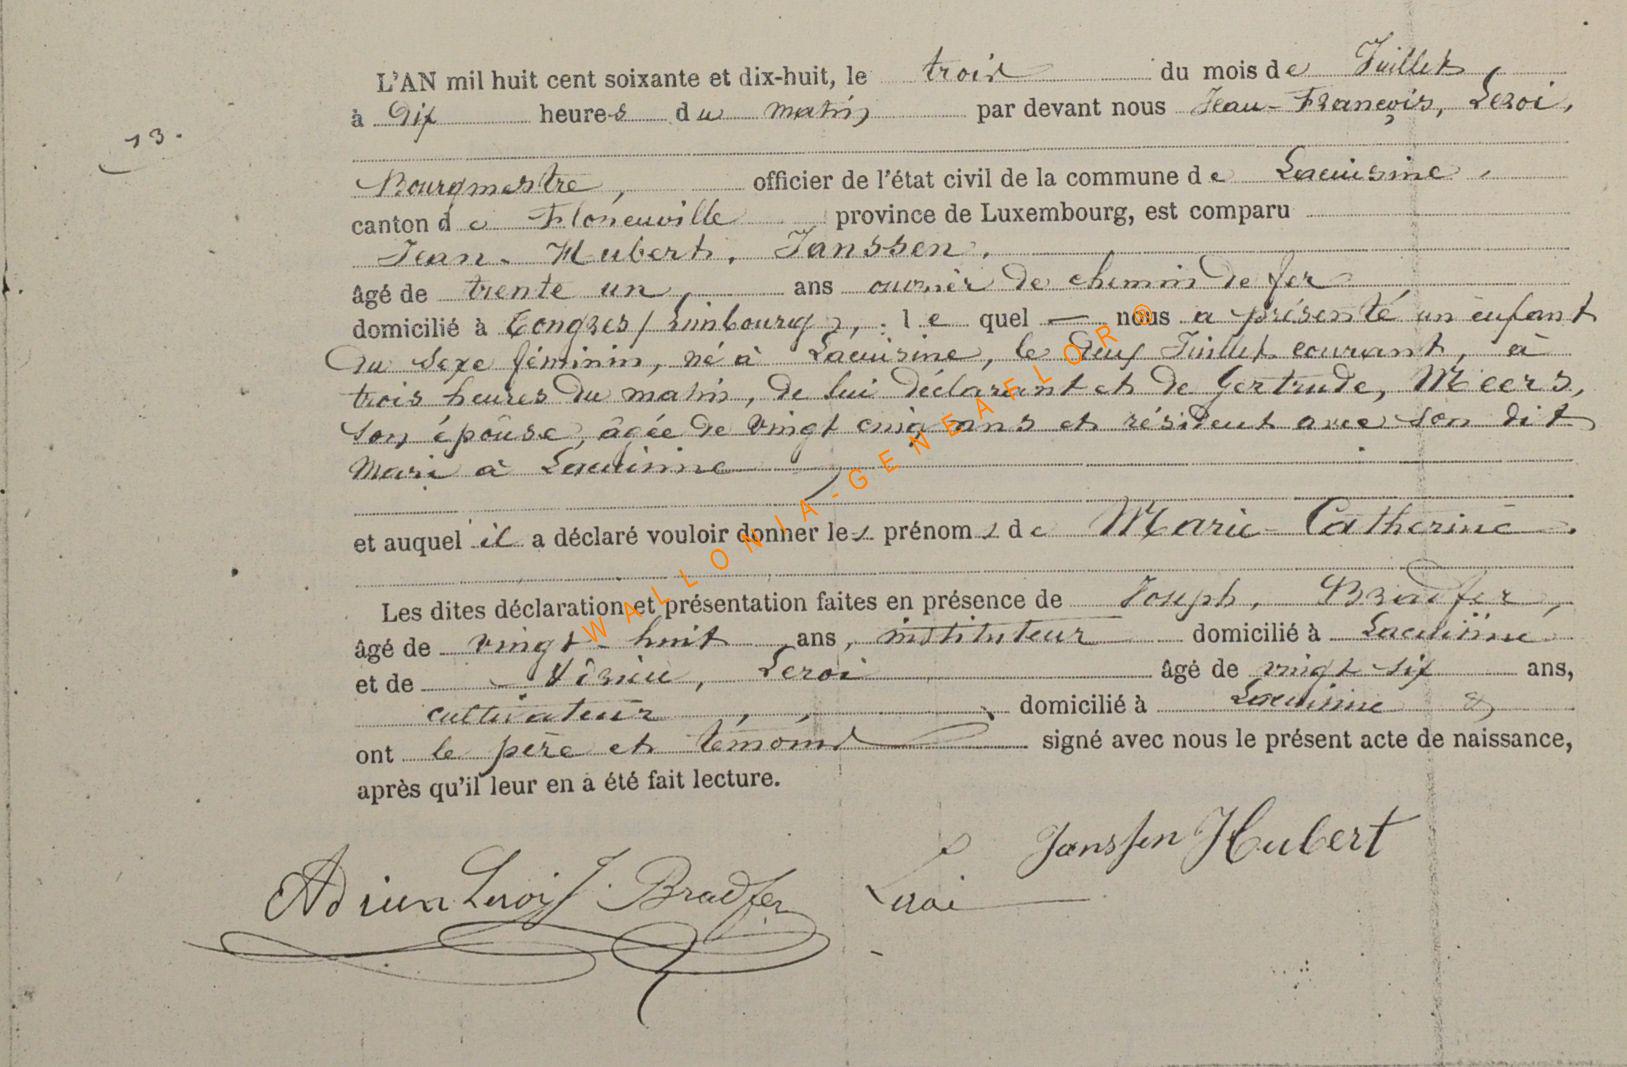 L'AN mil huit cent soixante et dix-huit, le trois du mois de Juillet,
13.
à dix heures du matin, par devant nous Jean-François, Leroi,
Bourgmestre, officier de l'état civil de la commune de Lacuisine,
canton de Florenville province de Luxembourg, est comparu
Jean-Hubert, Janssen,
âgé de trente un, ans ouvrier de chemin de fer
domicilié à Tongres (Limbourg), lequel — nous a présenté un enfant
du sexe féminin, né à Lacuisine, le deux Juillet courant, à
trois heures du matin, de lui déclarant et de Gertrude, Meers,
son épouse, âgée de vingt cinq ans et résident avec son dit
mari à Lacuisine
et auquel il a déclaré vouloir donner les prénoms de Marie-Catherine.
Les dites déclaration et présentation faites en présence de Joseph, Bradfer,
âgé de vingt-huit ans, instituteur domicilié à Lacuisine
et de Leroi âgé de vingt-six ans,
cultivateur domicilié à Lacuisine &
ont le père et témoins signé avec nous le présent acte de naissance,
après qu'il leur en a été fait lecture.
Janssen Hubert
Adrien Leroi J. Bradfer Leroi
WALLONIA-GENEAFLOR ®